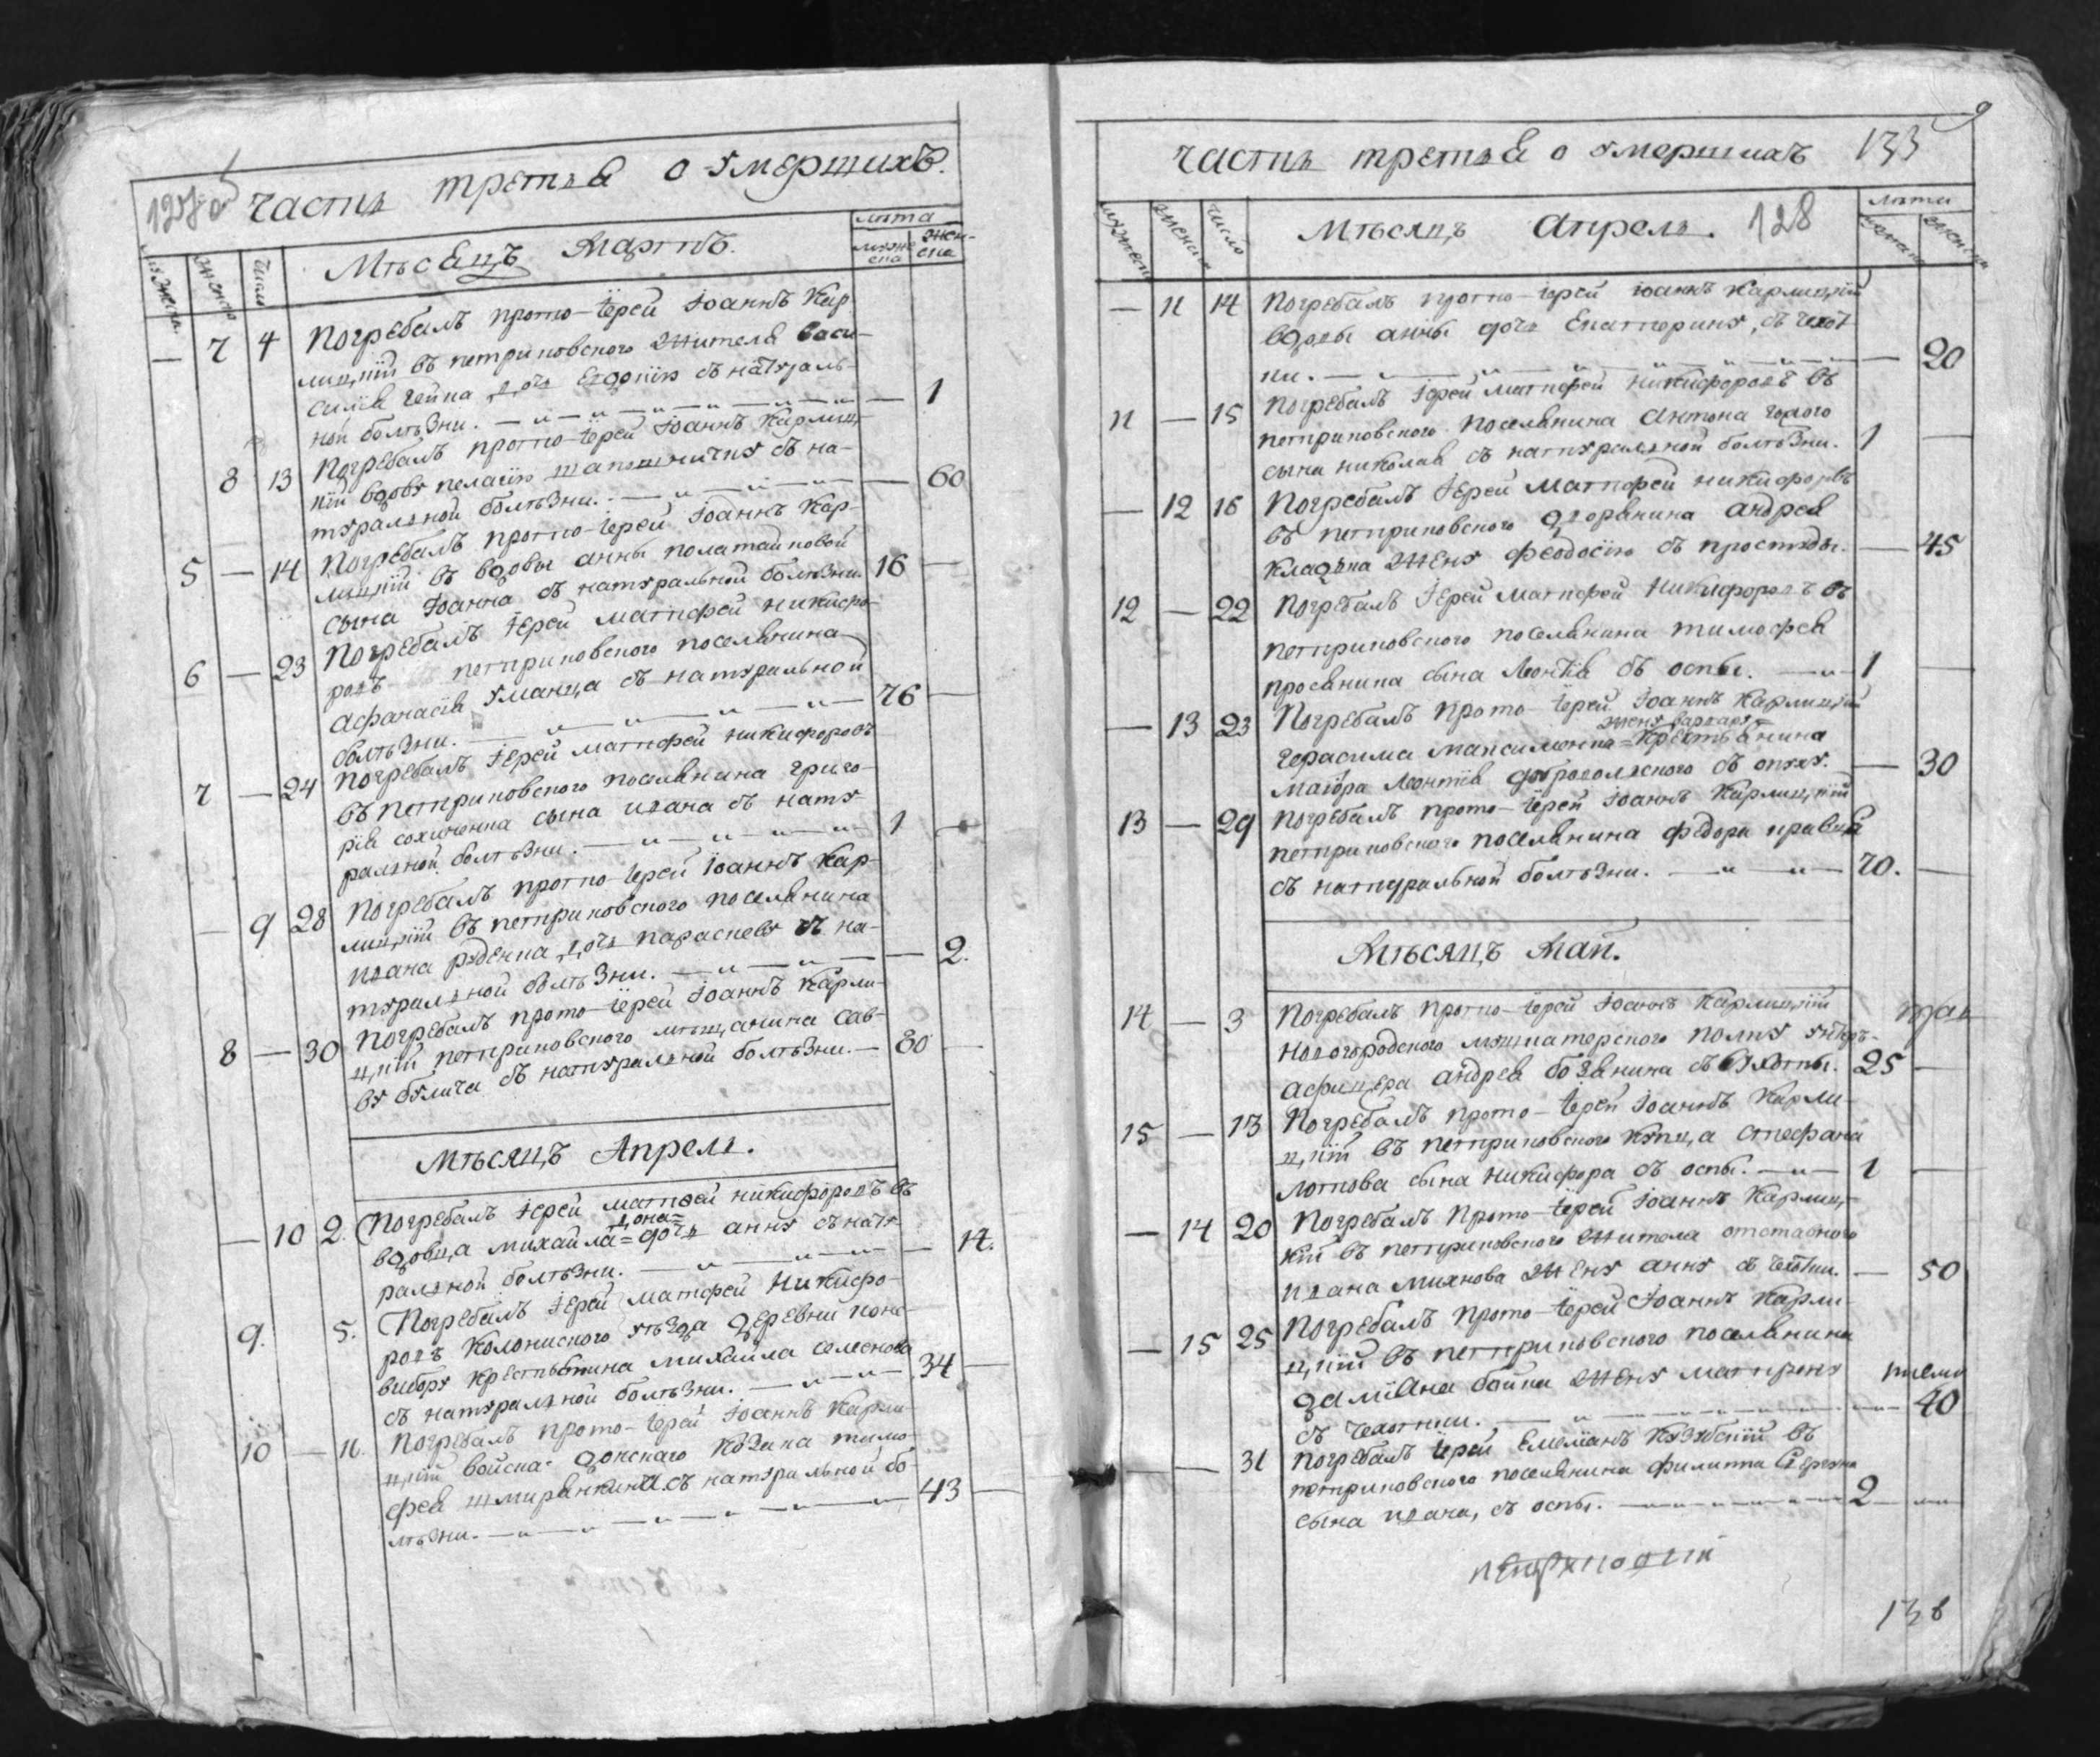 часть третья о умершихъ.
Мѣсяцъ Мартъ.
лѣта
7 4 Погребалъ прото-Іерей Іоаннъ Кар-
лицкій въ петриковского жителя Васи-
силія дочь Евдокію съ натураль-
ной болѣзни. — 1
8 13 Погребалъ прото-Іерей Іоаннъ Карлиц-
кій вдову пелагію съ на-
туральной болѣзни. — 60
5 — 14 Погребалъ прото-Іерей Іоаннъ Кар-
лицкій въ вдовы анны
сына Іоанна съ натуральной болѣзни. 16 —
6 — 23 Погребалъ Іерей матфей никифо-
ровъ петриковского поселянина
афанасія уманца съ натуральной
болѣзни. 76 —
7 — 24 Погребалъ Іерей матфей никифоровъ
въ петриковского поселянина григо-
рія сына ивана съ нату-
ральной болѣзни. 1 —
— 9 28 Погребалъ прото-Іерей Іоаннъ Кар-
лицкій въ петриковского поселянина
ивана руденка дочь параскеву съ на-
туральной болѣзни. — 2.
8 — 30 Погребалъ прото-Іерей Іоаннъ Карли-
цкій петриковского мѣщанина сав-
ву булича съ натуральной болѣзни. — 80 —
Мѣсяцъ Апрель.
— 10 2. Погребалъ Іерей матвей никифоровъ въ
вдовца михайла дочь анну съ нату-
ральной болѣзни. — 14.
9. 5. Погребалъ Іерей матфей никифо-
ровъ уѣзда деревни
крестьянина михайла семенова
съ натуральной болѣзни. 34 —
10 — 11. Погребалъ прото-Іерей Іоаннъ Карли-
цкій войска донскаго козака тимо-
фея съ натуральной бо-
лѣзни. 43 —
часть третья о умершихъ 133
Мѣсяцъ Апрель. 128
лѣта
— 11 14 Погребалъ прото-Іерей Іоаннъ Карлицкій
вдовы анны дочь Екатерину, съ чехот-
ки. — 20
11 — 15 Погребалъ Іерей матфей никифоровъ въ
петриковского поселянина антона
сына николая съ натуральной болѣзни. 1 —
— 12 16 Погребалъ Іерей матфей никифоровъ
въ петриковского дворянина андрея
жену феодосію съ простуды. — 45
12 — 22 Погребалъ Іерей матфей никифоровъ въ
петриковского поселянина тимофея
просяника сына леонтія съ оспы. 1 —
— 13 23 Погребалъ прото-Іерей Іоаннъ Карлицкій
жену варвару
герасима максименка = крестьянина
маіора леонтія добровольского съ опуху. — 30
13 — 29 Погребалъ прото-Іерей Іоаннъ Карлицкій
петриковского поселянина федора
съ натуральной болѣзни. 70. —
Мѣсяцъ Май.
14 — 3 Погребалъ прото-Іерей Іоаннъ Карлицкій
новогородского мушкатерского полку унтеръ-
афицера андрея съ 25 —
15 — 13 Погребалъ прото-Іерей Іоаннъ Карли-
цкій въ петриковского купца стефана
сына никифора съ оспы. 1 —
— 14 20 Погребалъ прото-Іерей Іоаннъ Карлиц-
кій въ петриковского жителя отставного
ивана жену анну съ чехотки. — 50
— 15 25 Погребалъ прото-Іерей Іоаннъ Карли-
цкій въ петриковского поселянина
даміана бойка жену матрену
съ чехотки. — 40
— 31 Погребалъ Іерей Емеліанъ въ
петриковского поселянина филиппа
сына ивана, съ оспы. 2
138